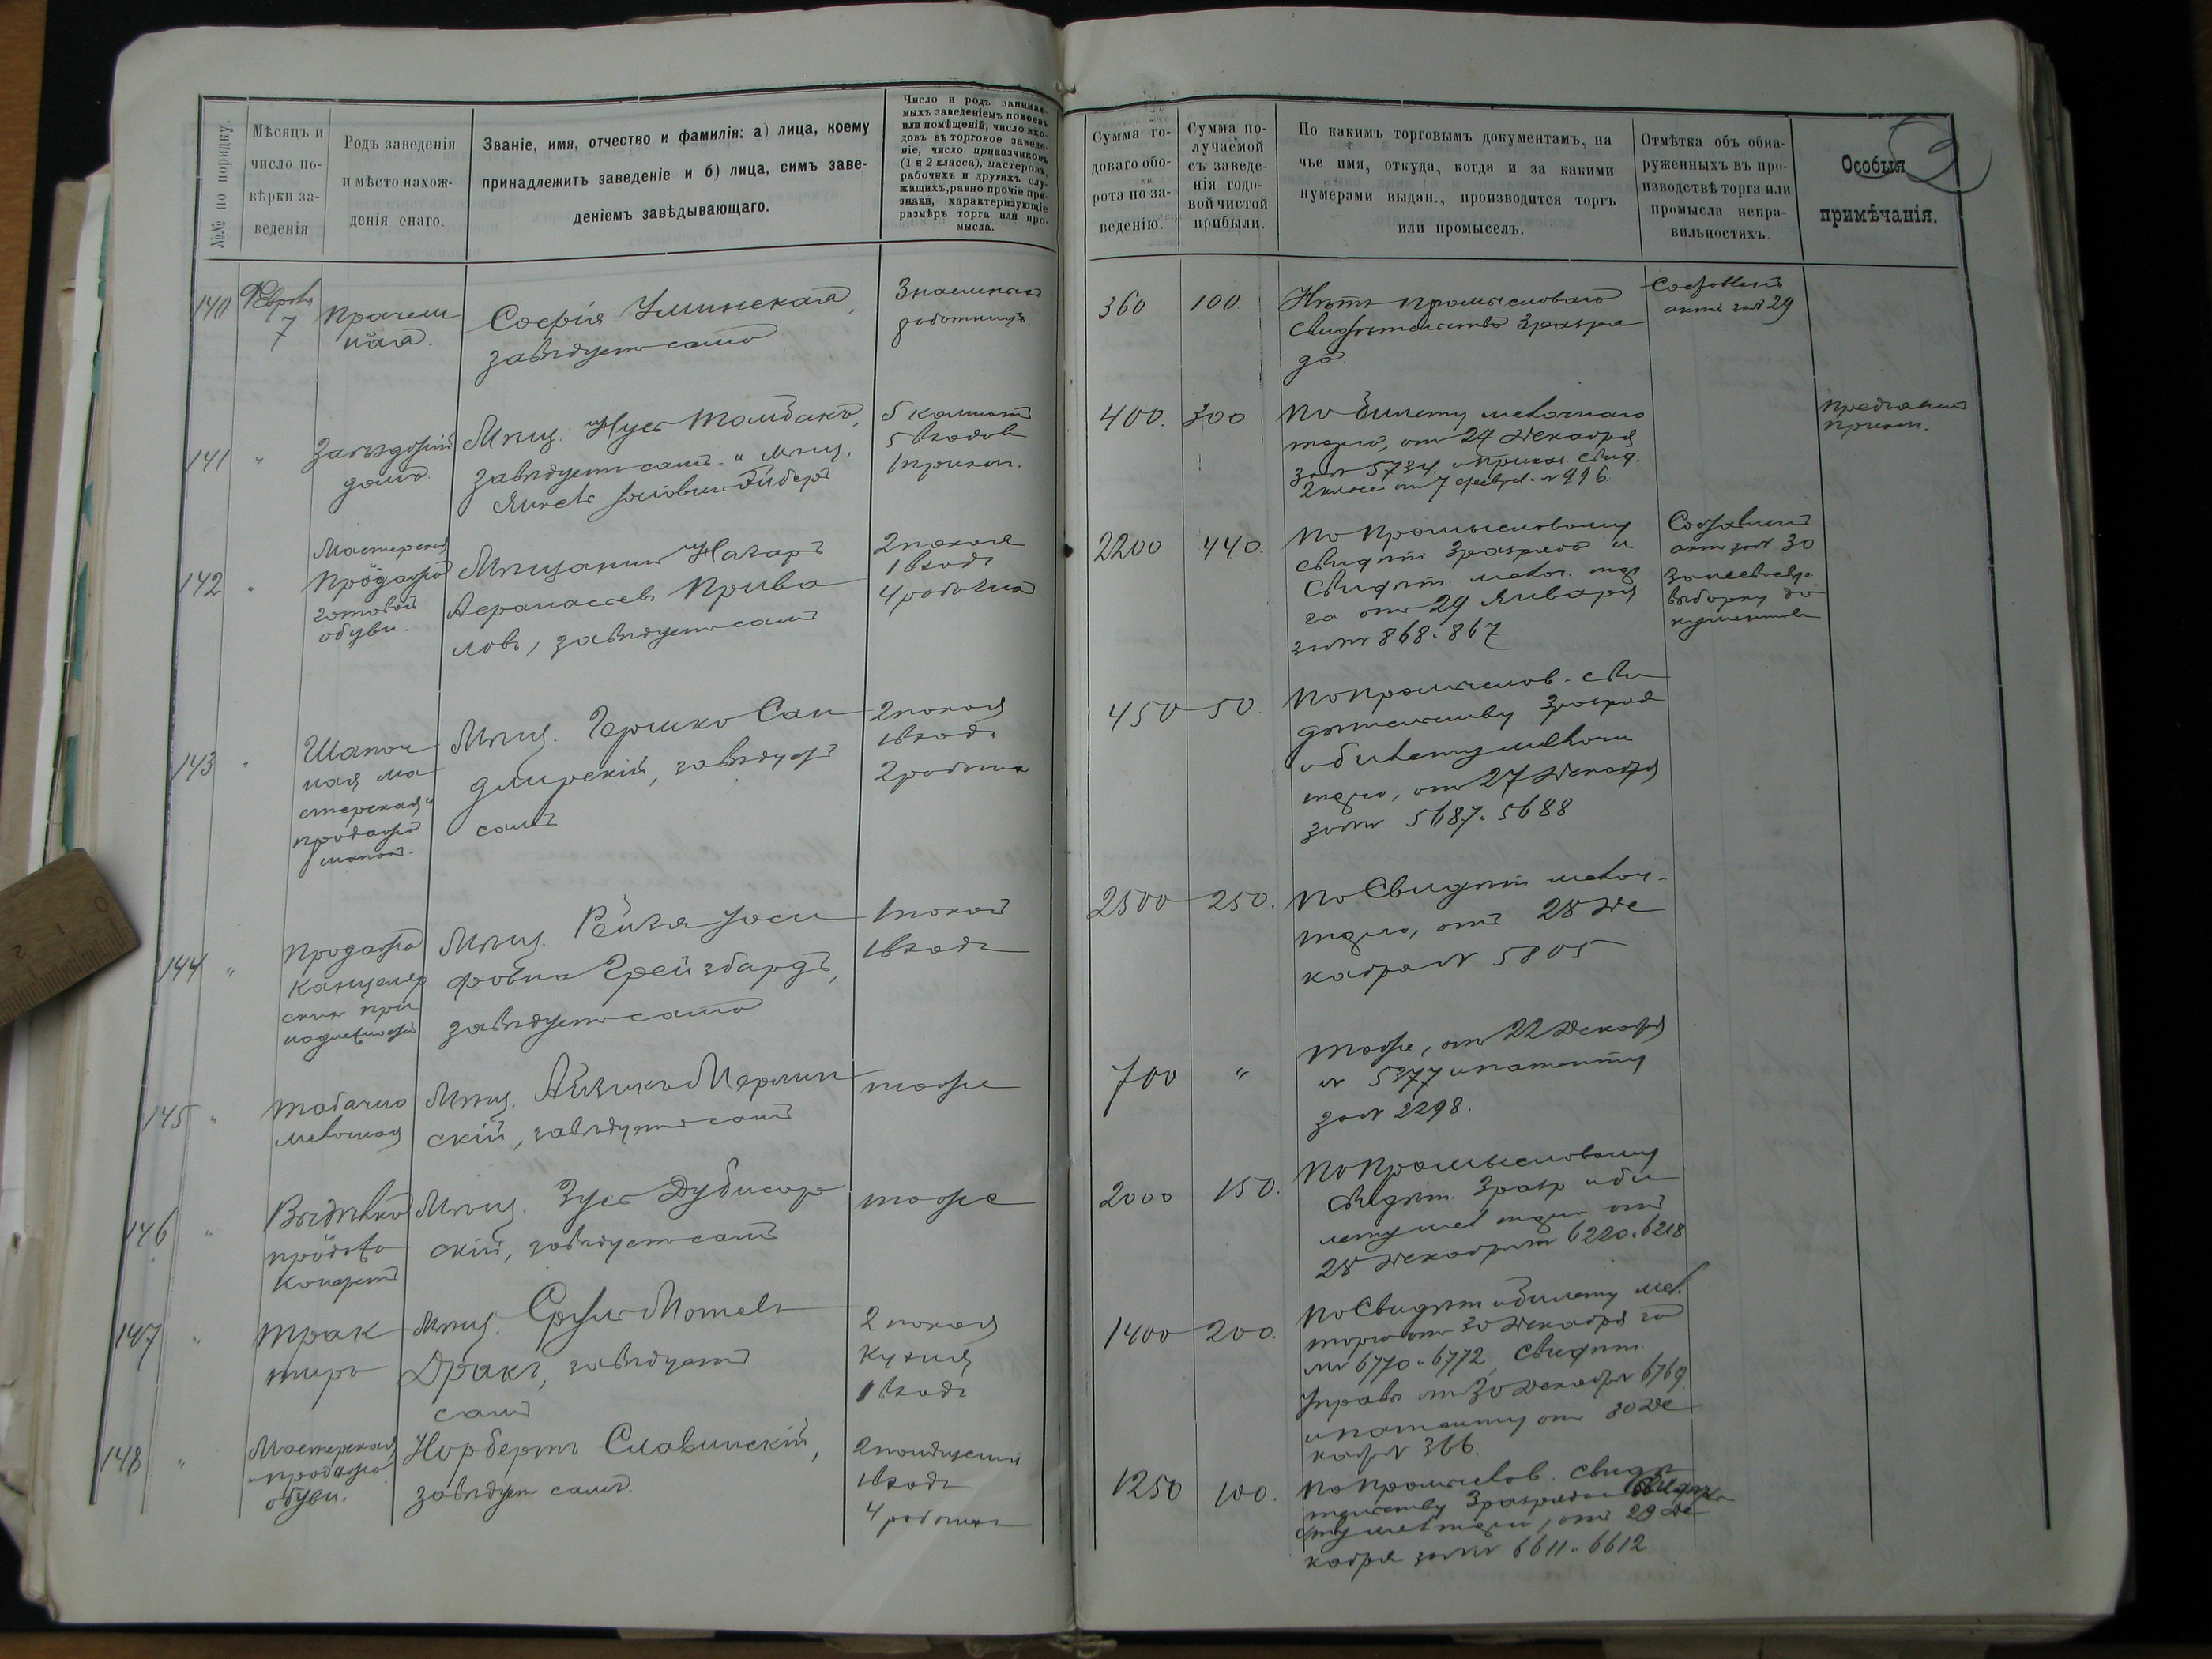 №№ по порядку.
Мѣсяцъ и
число по-
вѣрки за-
веденія
Родъ заведенія
и мѣсто нахож-
денія онаго.
Званіе, имя, отчество и фамилія: а) лица, коему
принадлежитъ заведеніе и б) лица, симъ заве-
деніемъ завѣдывающаго.
Число и родъ занимае-
мыхъ заведеніемъ покоевъ
или помѣщеній, число вхо-
довъ въ торговое заведе-
ніе, число приказчиковъ
(1 и 2 класса), мастеровъ,
рабочихъ и другихъ слу-
жащихъ, равно прочіе при-
знаки, характеризующіе
размѣръ торга или про-
мысла.
Сумма го-
доваго обо-
рота по за-
веденію.
Сумма по-
лучаемой
съ заведе-
нія годо-
вой чистой
прибыли.
По какимъ торговымъ документамъ, на
чье имя, откуда, когда и за какими
нумерами выдан., производится торгъ
или промыселъ.
Отмѣтка объ обна-
руженныхъ въ про-
изводствѣ торга или
промысла непра-
вильностяхъ.
Особыя
примѣчанія.
140
7
Прачеш
ная.
Софія Уминская,
завѣдуетъ сама
3 наемныхъ
работницъ.
360 100
Нѣтъ промысловаго
свидѣтельства 3 разря
да
Составленъ
актъ за № 29
141 "
Заѣздный
домъ
Мѣщ. Нусъ
завѣдуетъ самъ. и мѣщ.
5 комнатъ
5 входовъ
1 прикащ.
400. 300
По билету мелочнаго
торга, отъ 27 Декабря
за № 5734 и прикащ. свид.
2 класса отъ 7 февр. № 996
прикащ.
142 "
Мастерская
продажа
готовой
обуви.
Мѣщанинъ Назаръ
Афанасьевъ Прива
ловъ, завѣдуетъ самъ
2 покоя
1 входъ
4 работника
2200 440.
По промысловому
свидѣт. 3 разряда и
свидѣт. мелоч. тор
га отъ 29 Января
за №№ 868 и 867
Составленъ
актъ за № 30
за
выборку до
кументовъ
143 "
Шапоч
ная ма
стерская и
продажа
шапокъ.
Мѣщ. Гершко Сан
домирскій, завѣдуетъ
самъ
2 покоя
1 входъ
2 работника
450 50.
По промыслов. сви
дѣтельству 3 разряда
и билету мелочн.
торга, отъ 27 Декабря
за №№ 5687 и 5688
144 "
Продажа
канцеляр
скихъ при
надлежностей
Мѣщ. Рейзя Іоси
фовна Грейзбардъ,
завѣдуетъ сама
1 покой
1 входъ
2500 250.
По свидѣт. мелоч.
торга, отъ 28 Де
кабря № 5805
145 "
Табачно
мелочная
Мѣщ. Айзикъ Мерлин
скій, завѣдуетъ самъ
тоже
700 "
Тоже, отъ 22 Декабря
№ 5377 и патенту
за № 2298.
146 "
Выдѣлка
продажа
конфетъ
Мѣщ. Зусь Дубисар
скій, завѣдуетъ самъ
тоже
2000 150.
По промысловому
свидѣт. 3 разр. и би
лету мел. торга отъ
28 Декабря №№ 6220 и 6218
147 "
Трак
тиръ
Мѣщ. Мотель
Дракъ, завѣдуетъ
самъ
2 покоя
кухня
1 входъ
1400 200.
По свидѣт. и билету мел.
торга отъ 30 Декабря за
№№ 6770 и 6772, свидѣт.
Управы отъ 30 Декабря № 6769
и патенту отъ 30 Де
кабря № 366.
148 "
Мастерская
и продажа
обуви.
Норбертъ Славинскій,
завѣдуетъ самъ.
2 помѣщенія
1 входъ
4 работник.
1250 100.
По промыслов. свидѣ
тельству 3 разряда и
мел. торга, отъ 29 Де
кабря за №№ 6611 и 6612.